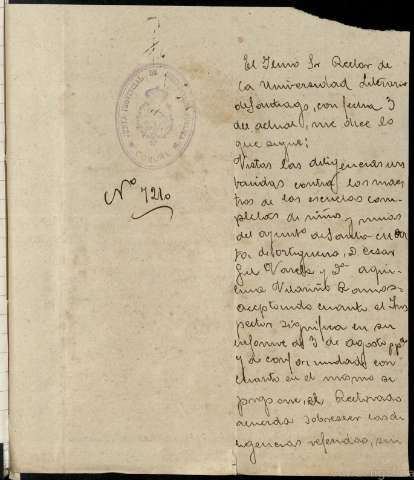 Nº 7210
El Ilmo Sr Rector de
la Universidad Literaria
de Santiago, con fecha 3
del actual, me dice lo
que sigue:
Vistas las diligencias ins
truidas contra los maes
tros de las escuelas com
pletas de niños y niñas
del ayunto de Santa
de Ortigueira, D. Cesar
Gil Varela y Dª
Vilariño Ramos
aceptando cuanto el Ins
pector significa en su
informe de 3 de agosto ppº
y de conformidad con
cuanto en el mismo se
propone, el Rectorado
acuerda sobreseer las di
ligencias referidas, sin